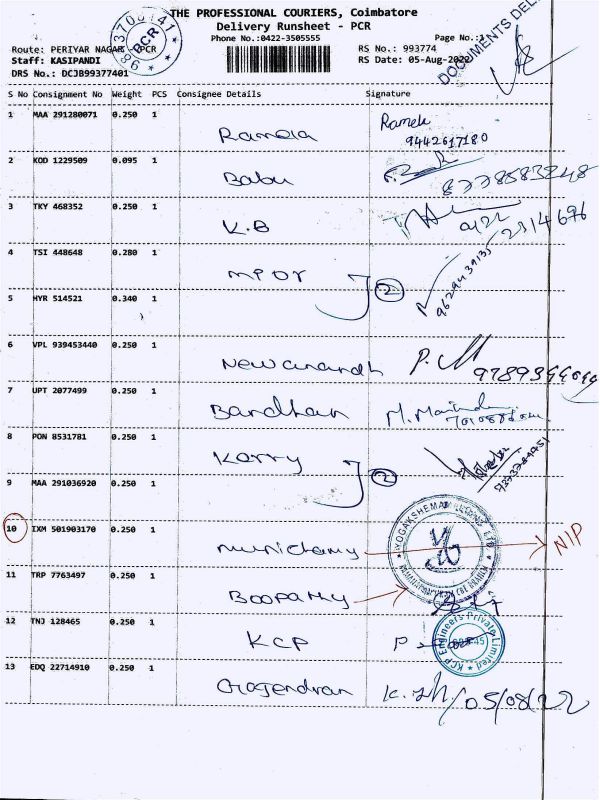 THE PROFESSIONAL COURIERS, Coimbatore
Delivery Runsheet - PCR
Phone No.:0422-3505555
Page No.:1
Route: PERIYAR NAGAR -PCR
RS No.: 993774
Staff: KASIPANDI
RS Date: 05-Aug-2022
DRS No.: DCJB99377401
PCR
DOCUMENTS DEL
S No Consignment No Weight PCS Consignee Details Signature
1 MAA 291280071 0.250 1
Ramela Ramela
9442617180
2 KOD 1229509 0.095 1
Babu 8778583248
3 TKY 468352 0.250 1
K.B 0422 2314676
4 TSI 448648 0.280 1
2
9629439135
5 HYR 514521 0.340 1
6 VPL 939453440 0.250 1
New anandh
7 UPT 2077499 0.250 1
Bardhan
8 PON 8531781 0.250 1
Karry
2
9 MAA 291036920 0.250 1
10 IXM 501903170 0.250 1
Munichamy NIP
YOGAKSHEMAM
11 TRP 7763497 0.250 1
Boopathy
12 TNJ 128465 0.250 1
KCP
KCP Engineers Private Limited
13 EDQ 22714910 0.250 1
Gagendran 05/08/22